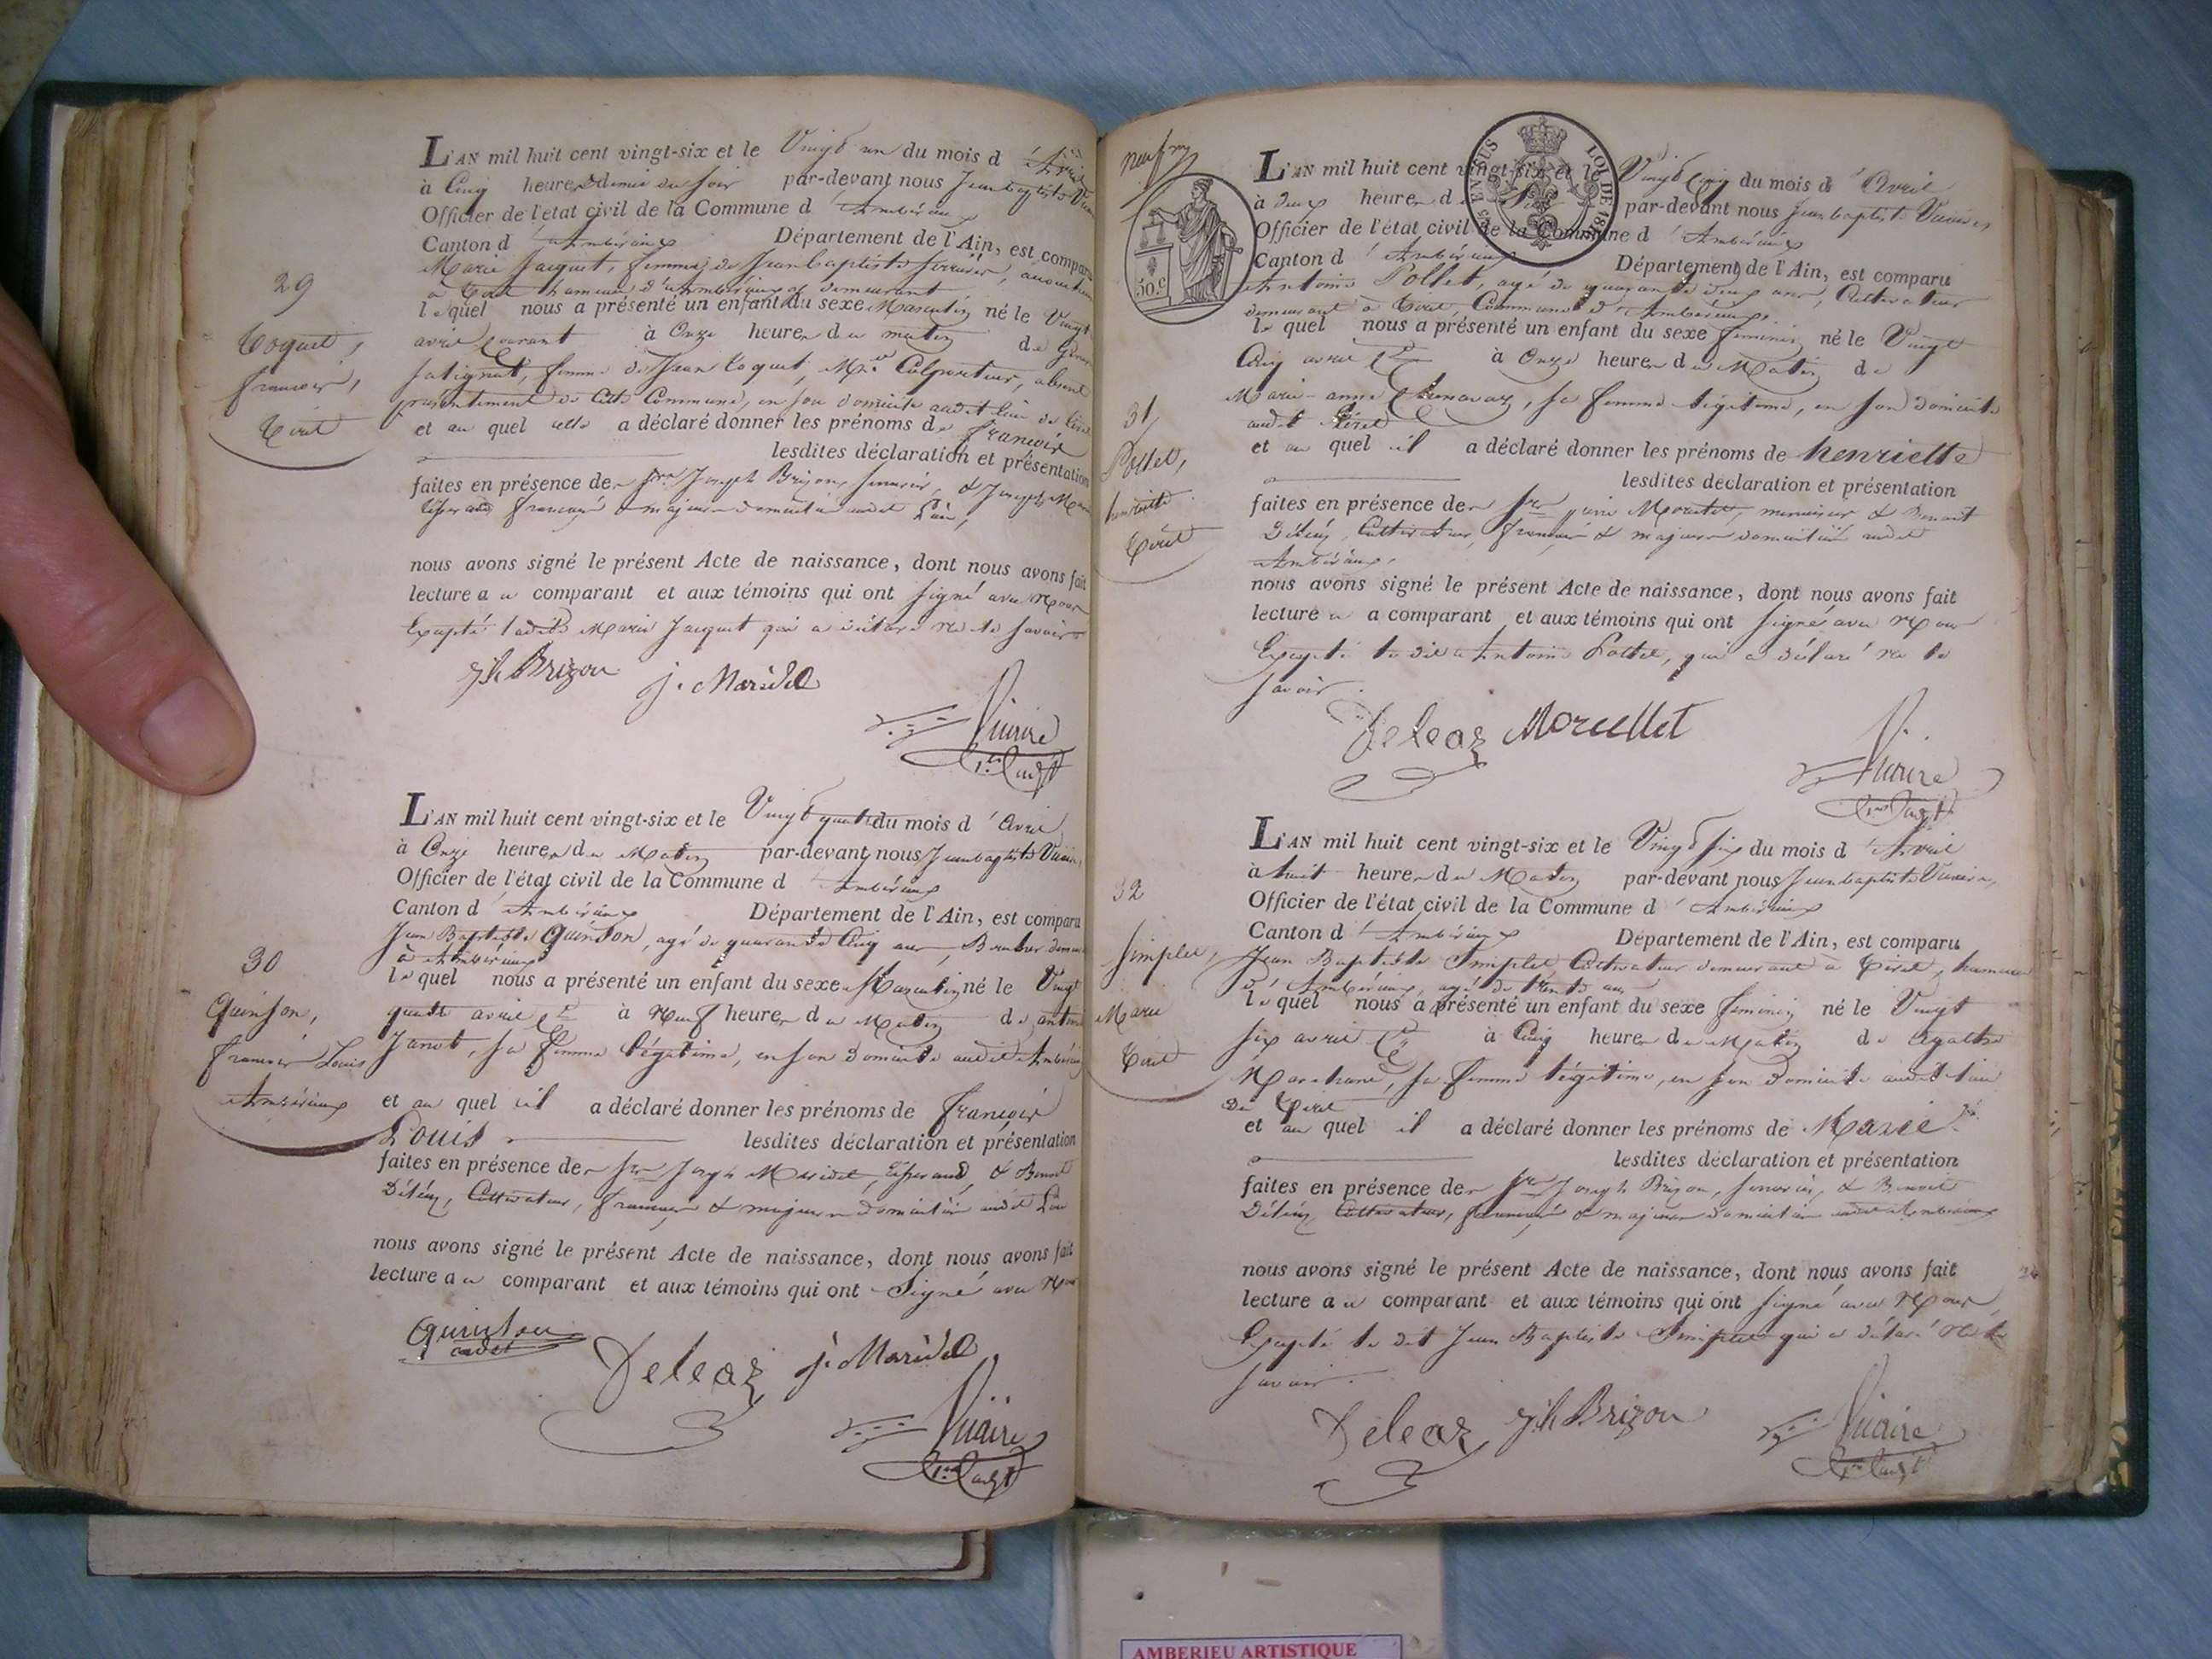 L'AN mil huit cent vingt-six et le Vingt un du mois d'Avril
à Cinq heures & demie du soir par-devant nous Jean baptiste
Officier de l'état civil de la Commune d'Ambérieux
Canton d'Ambérieux Département de l'Ain, est comparu
Marie Jacquet, femme de Jean baptiste
à Tiret hameau d'Ambérieux y demeurant
29
lequel nous a présenté un enfant du sexe Masculin né le Vingt
Coquet,
avril courant à Onze heures du matin de
françois,
femme de Jean Coquet, Md Colporteur, absent
Tiret
présentement de cette Commune, en son domicile audit lieu de Tiret
et au quel elle a déclaré donner les prénoms de françois
lesdites déclaration et présentation
faites en présence des Srs Joseph Brizon, & Joseph
Tisserand français & majeurs domiciliés audit Lieu,
nous avons signé le présent Acte de naissance, dont nous avons fait
lecture a u comparant et aux témoins qui ont signé avec Nous
Excepté ladite Marie Jacquet qui a déclaré ne le savoir
Jh Brizon J. Maridel
Vuaire
L'AN mil huit cent vingt-six et le Vingt quatre du mois d'Avril
à Onze heures du Matin par-devant nous Jean baptiste Vuaire,
Officier de l'état civil de la Commune d Ambérieux
Canton d'Ambérieux Département de l'Ain, est comparu
Jean Baptiste Quinson, agé de quarante Cinq ans,
à Ambérieux
30
lequel nous a présenté un enfant du sexe Masculin né le Vingt
Quinson,
quatre avril à Neuf heures du Matin d
françois Louis
Janot, sa femme légitime, en son domicile audit Ambérieux
Ambérieux
et au quel il a déclaré donner les prénoms de françois
Louis lesdites déclaration et présentation
faites en présence des Srs Joseph Maridel, Tisserand, & Benoit
Déléaz, Cultivateur, français & majeurs domiciliés audit Lieu
nous avons signé le présent Acte de naissance, dont nous avons fait
lecture a u comparant et aux témoins qui ont Signé avec Nous
Quinson
cadet
Deleaz J. Maridel
Vuaire
50 c
EN SUS LOI DE
L'AN mil huit cent vingt-six et le Vingt Cinq du mois d'Avril
à deux heures d par-devant nous Jean baptiste Vuaire
Officier de l'état civil de la Commune d'Ambérieux
Canton d'Ambérieux Département de l'Ain, est comparu
Antoine Pollet, agé de quarante deux ans, Cultivateur
demeurant à Tiret, Commune d'Ambérieux,
lequel nous a présenté un enfant du sexe féminin né le Vingt
Cinq avril à Onze heures du Matin de
Marie-anne, sa femme légitime, en son domicile
31
audit Tiret
Pollet,
et au quel il a déclaré donner les prénoms de henriette
henriette
lesdites déclaration et présentation
Tiret
faites en présence des Srs, menuisier & Benoit
Déléaz, Cultivateur, français & majeurs domiciliés audit
Ambérieux,
nous avons signé le présent Acte de naissance, dont nous avons fait
lecture a a comparant et aux témoins qui ont signé avec Nous
Excepté le dit Antoine Pollet, qui a déclaré ne le
savoir.
Deleaz Morellet
Vuaire
L'AN mil huit cent vingt-six et le Vingt six du mois d'Avril
à huit heures du Matin par-devant nous Jean baptiste Vuaire,
32
Officier de l'état civil de la Commune d'Ambérieux
Canton d'Ambérieux Département de l'Ain, est comparu
Simplet,
Jean Baptiste Simplet, Cultivateur demeurant à Tiret, hameau
d'Ambérieux, agé de trente ans
Marie
lequel nous a présenté un enfant du sexe féminin né le Vingt
Tiret
six avril à Cinq heures du Matin de Agathe
sa femme légitime, en son Domicile audit lieu
De Tiret
et au quel il a déclaré donner les prénoms de Marie.
lesdites déclaration et présentation
faites en présence des Srs Joseph Brizon, & Benoit
Déléaz, Cultivateur, français & majeurs domiciliés audit Ambérieux
nous avons signé le présent Acte de naissance, dont nous avons fait
lecture a u comparant et aux témoins qui ont signé avec Nous,
Excepté le dit Jean Baptiste Simplet qui a déclaré ne le
savoir.
Deleaz Jh Brizon Vuaire
AMBERIEU ARTISTIQUE